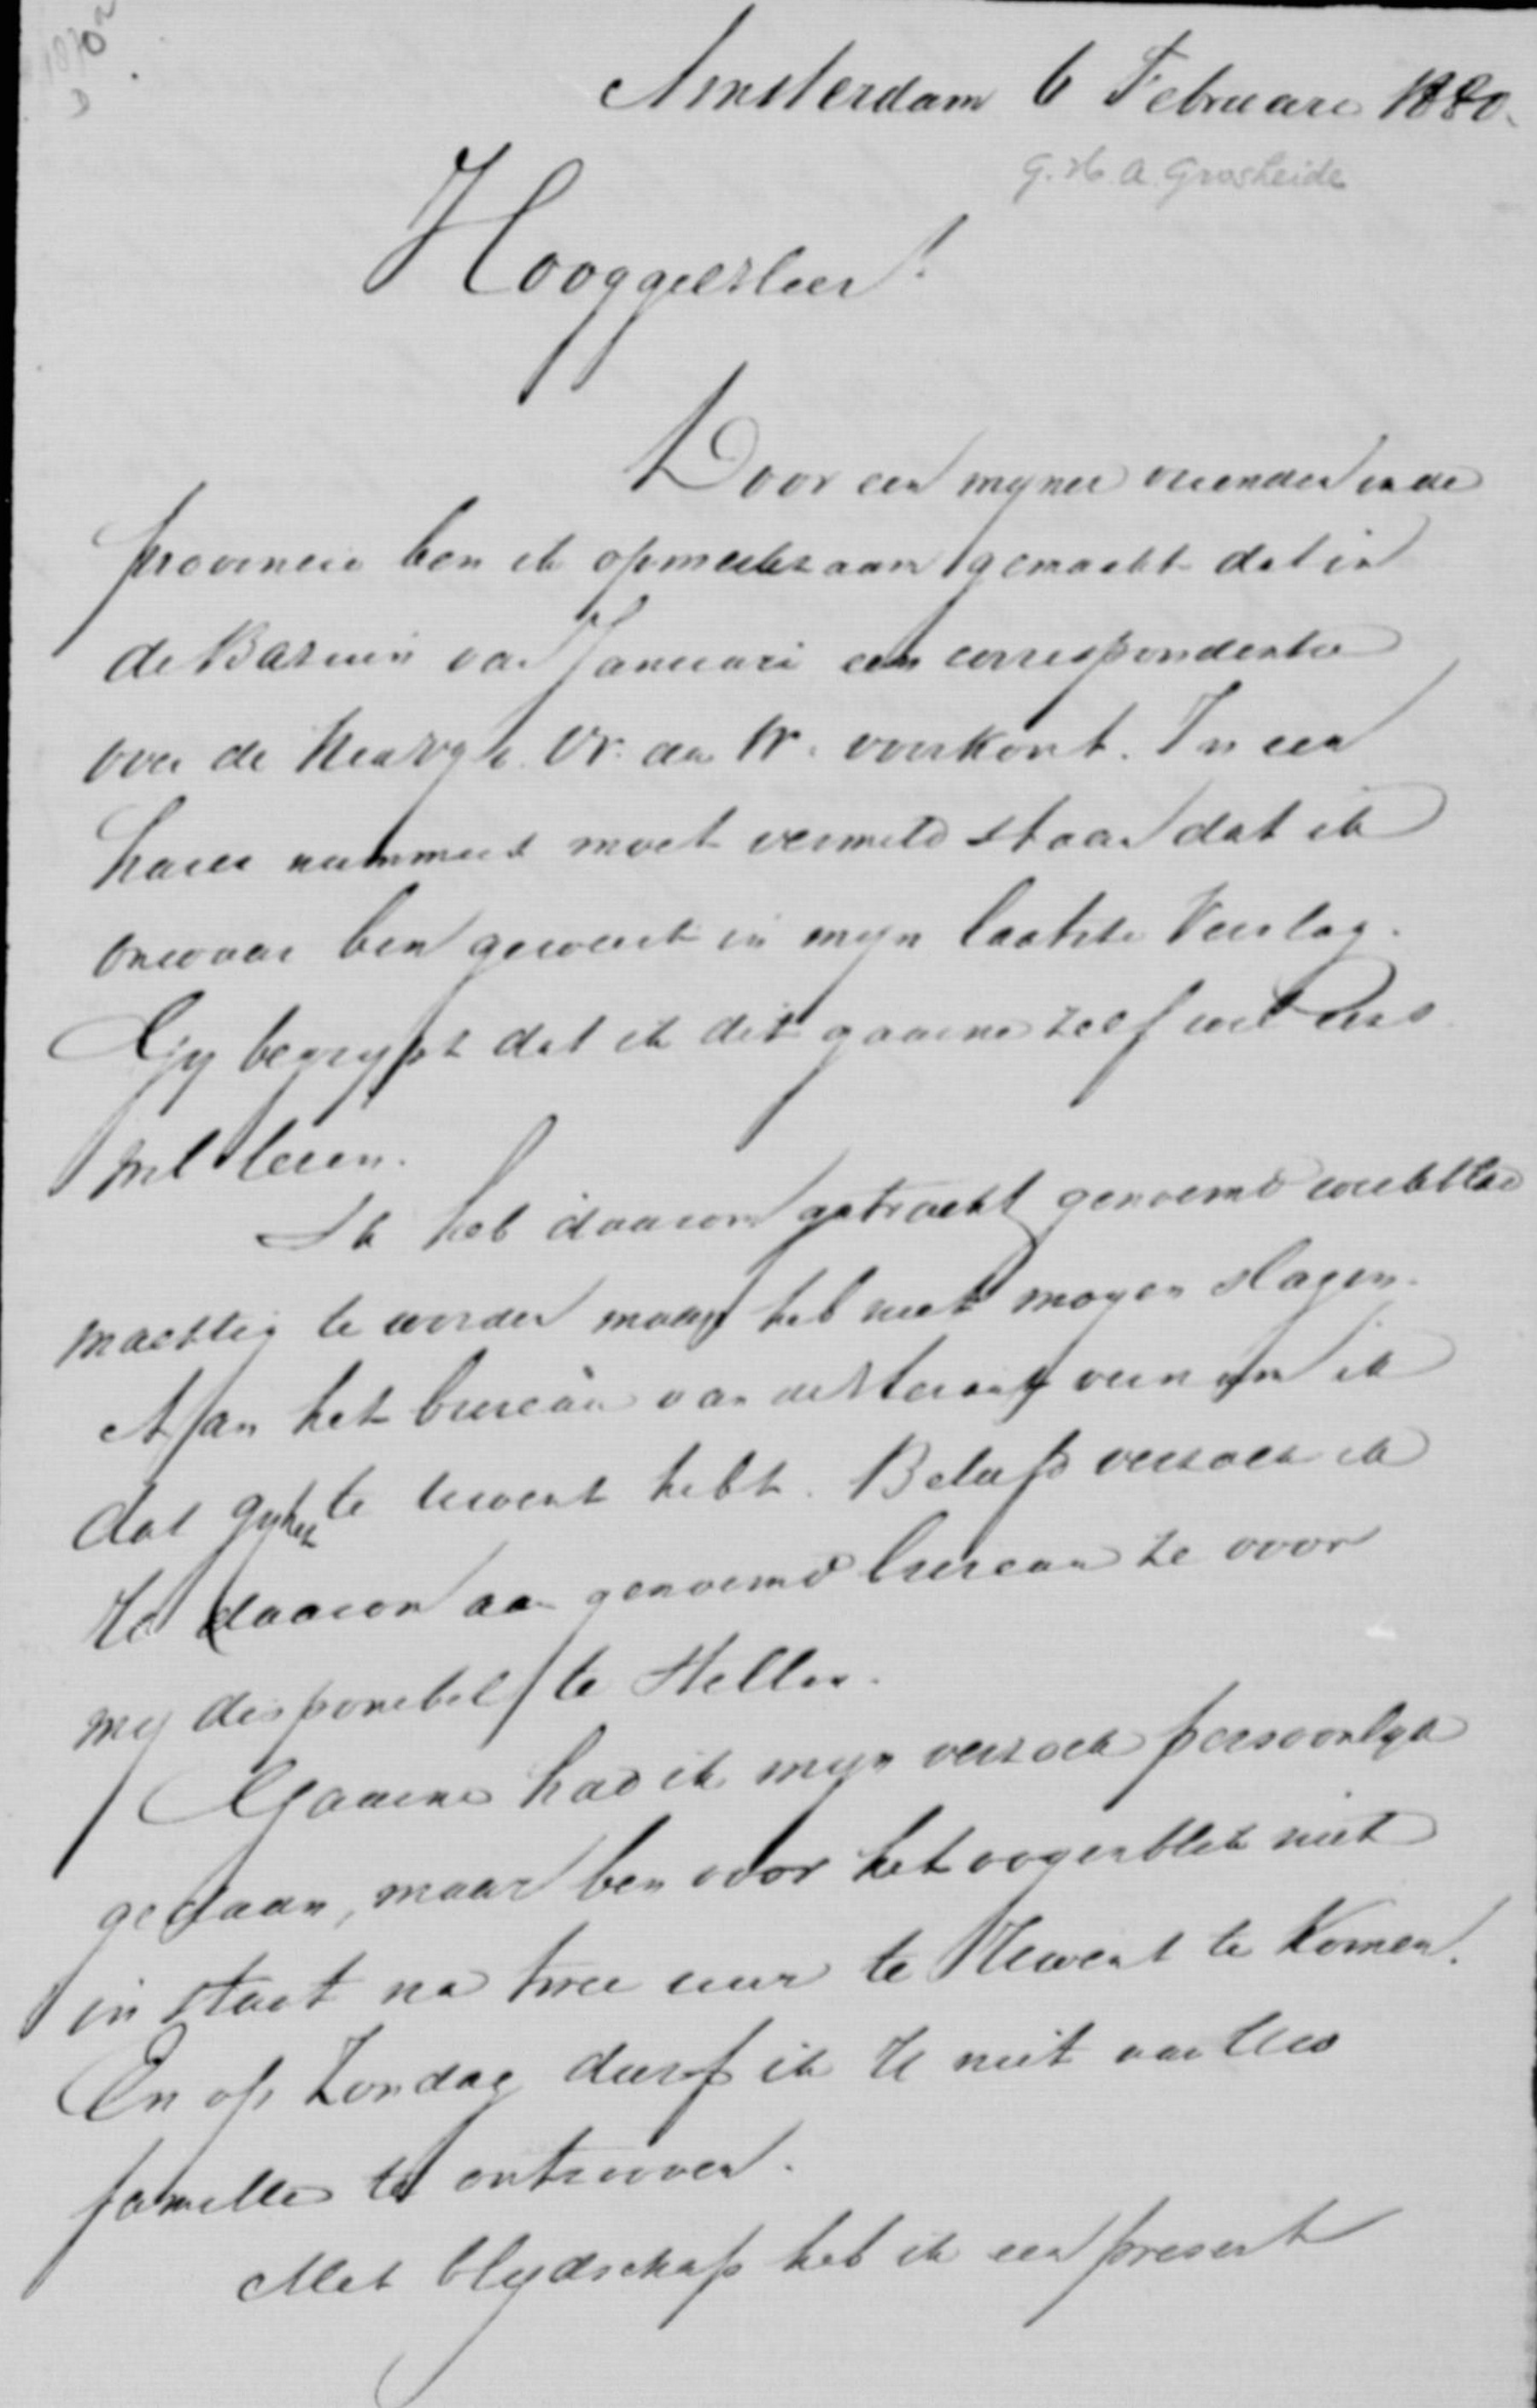 Amsterdam 6 Februari 1880.
G. H. A. Grosheide
Hooggeleer!
Door een mijner vrienden in de
provincie ben ik opmerkzaam gemaakt dat in
de Bazuin van Januari een correspondentie
over de Vr. a. W. voorkomt. In een
harer nummers moet vermeld staan dat ik
onwaar ben geweest in mijn laatste Verslag.
Gy begrypt dat ik dit gaarne zelf wil
lezen.
Ik heb daarom getracht genoemd weekblad
machtig te worden maar heb niet mogen slagen.
Aan het bureau van de Standaard vernam ik
dat gy het te huis hebt. Beleefd verzoek ik
U daarom aan genoemd bureau ze voor
my disponibel te stellen.
Gaarne had ik myn verzoek persoonlyk
gedaan, maar ben voor het oogenblik niet
in staat na twee uur te Uwent te komen.
En op Zondag durf ik U niet aan Uw
familie te ontrooven.
Met blydschap heb ik een present